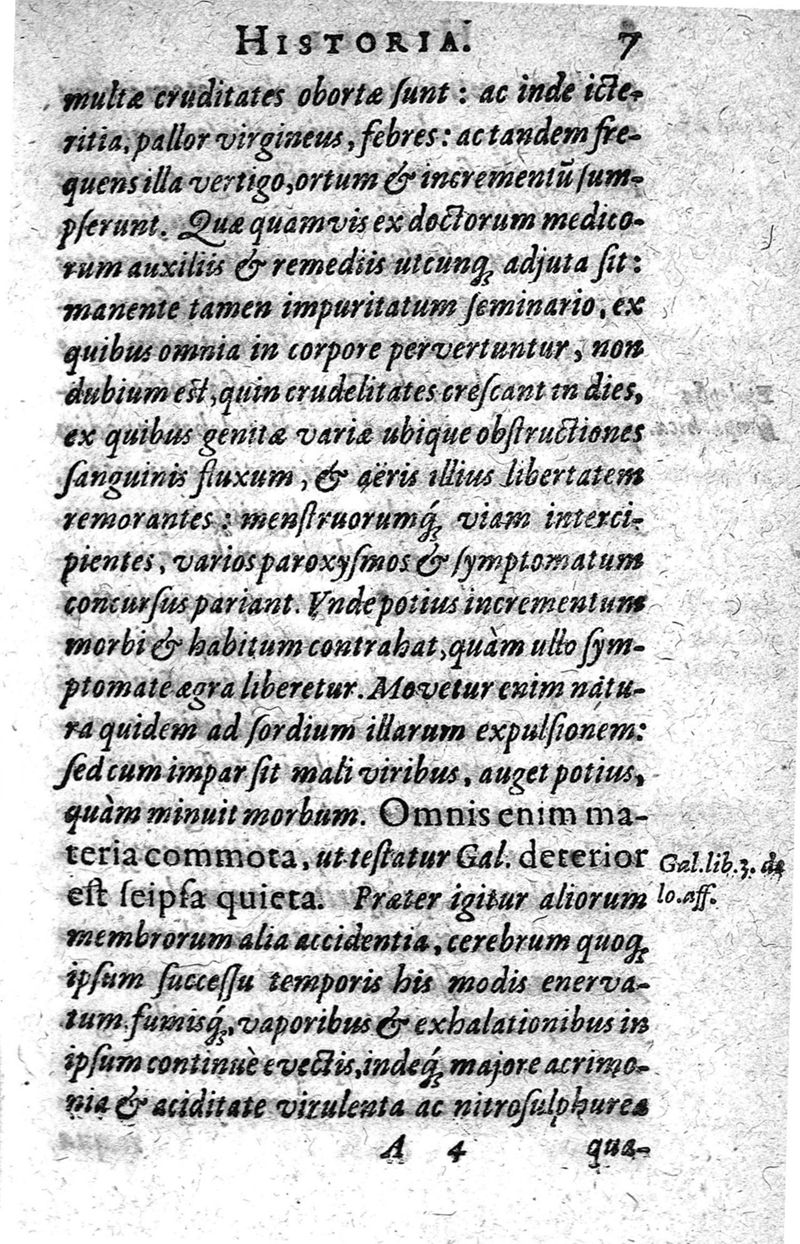 HISTORIA. 7
multæ cruditates obortæ ſunt: ac inde icte-
ritia, pallor virgineus, febres: ac tandem fre-
quens illa vertigo, ortum & incrementū ſum-
pſerunt. Quæ quamvis ex doctorum medico-
rum auxiliis & remediis utcunq; adjuta ſit:
manente tamen impuritatum ſeminario, ex
quibus omnia in corpore pervertuntur, non
dubium eſt, quin crudelitates creſcant in dies,
ex quibus genitæ variæ ubique obſtructiones
ſanguinis fluxum, & aëris illius libertatem
remorantes: menſtruorumq́; viam interci-
pientes, varios paroxyſmos & ſymptomatum
concurſus pariant. Vnde potius incrementum
morbi & habitum contrahat, quàm ullo ſym-
ptomate ægra liberetur. Movetur enim natu-
ra quidem ad ſordium illarum expulſionem:
ſed cum impar ſit mali viribus, auget potius,
quàm minuit morbum. Omnis enim ma-
teria commota, ut teſtatur Gal. deterior
eſt ſeipſa quieta. Præter igitur aliorum
membrorum alia accidentia, cerebrum quoq;
ipſum ſucceſſu temporis his modis enerva-
tum fumisq́;, vaporibus & exhalationibus in
ipſum continuè evectis, indeq́; majore acrimo-
nia & aciditate virulenta ac nitroſulphurea
A 4 qua-
Gal. lib. 3. de
lo. aff.